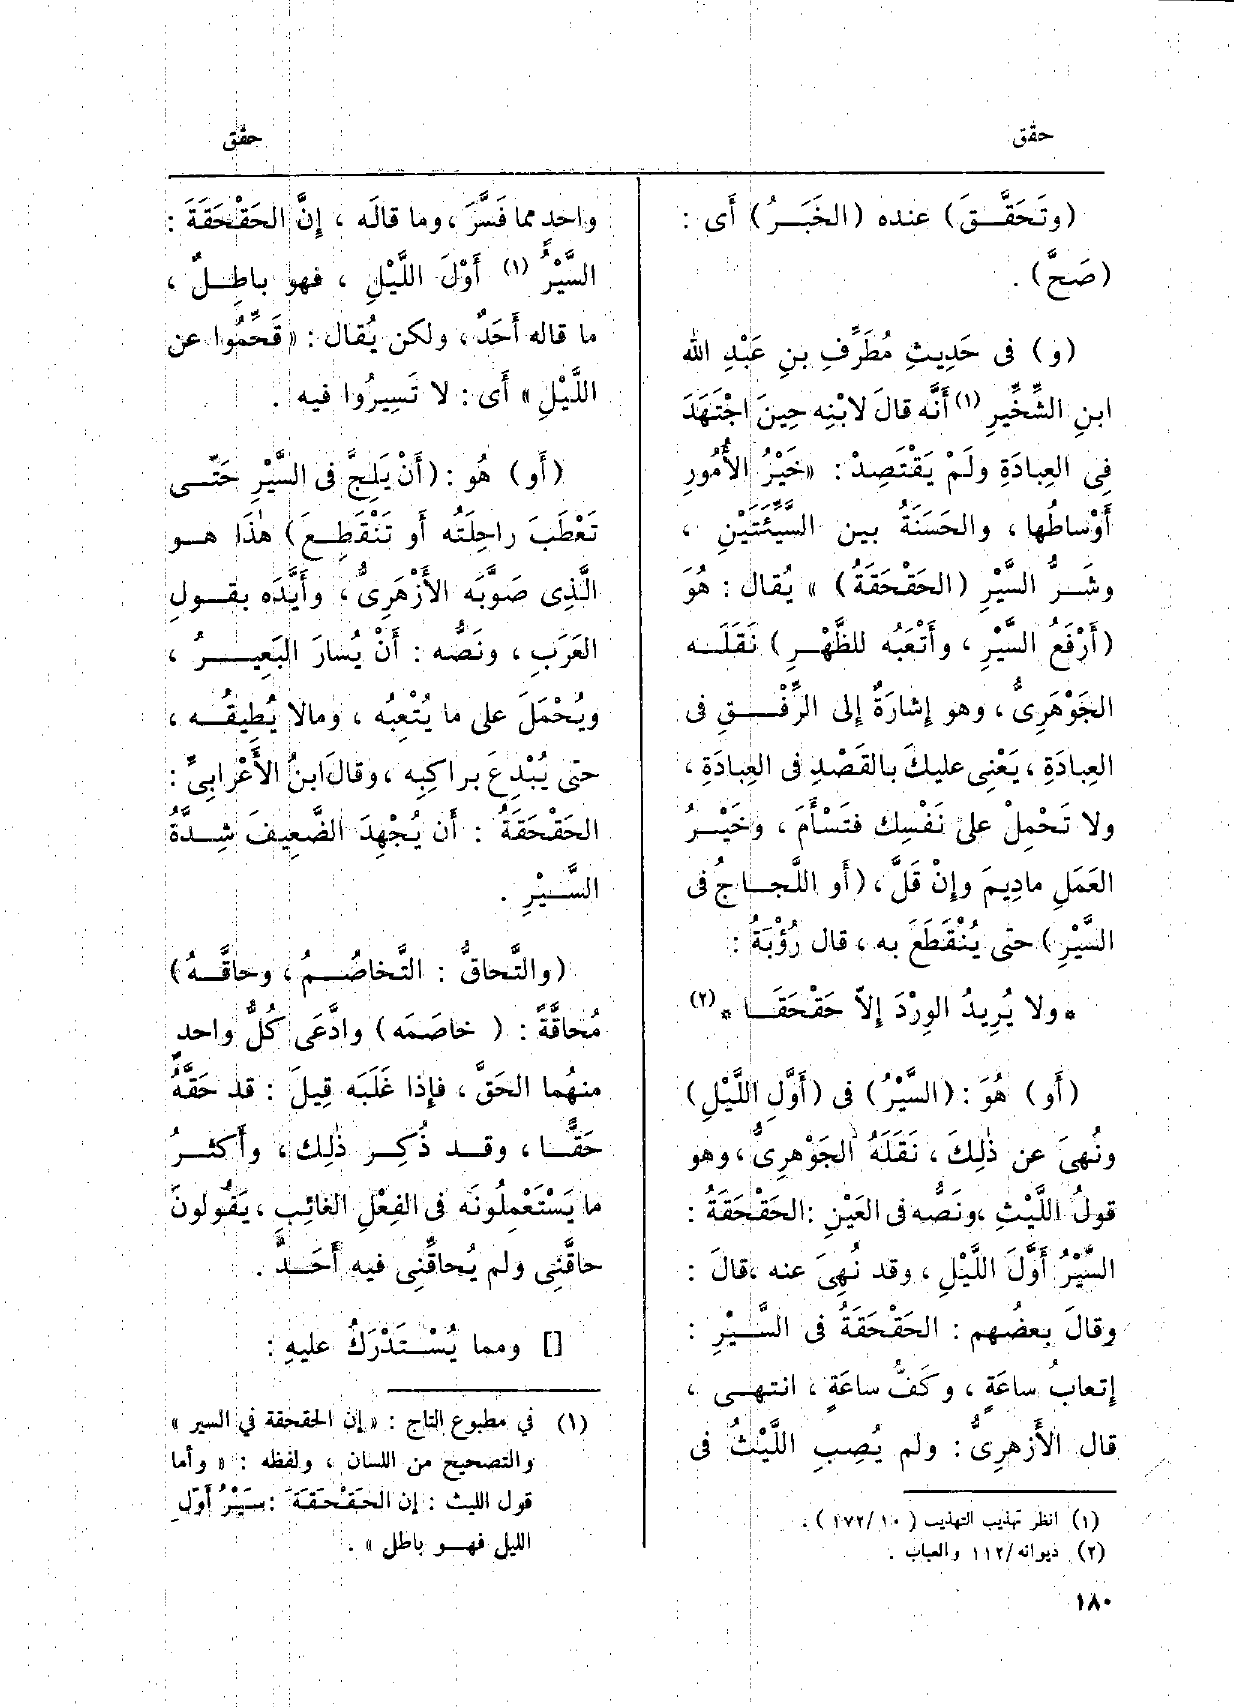 حقق
حقق
(وتَحَقَّـقَ) عنده (الخَبَـرُ) أَى :
(صَحَّ) .
(و) فى حَدِيثِ مُطَرِّفِ بنِ عَبْدِ الله
ابنِ الشِّخِّيرِ (١) أَنَّه قالَ لابْنِه حِينَ اجْتَهَدَ
فِى العِبادَةِ ولَمْ يَقْتَصِدْ : «خَيْرُ الأُمُورِ
أَوْساطُها ، والحَسَنَةُ بين السَّيِّئَتَيْنِ ،
وشَـرُّ السَّيْرِ (الحَقْحَقَةُ) » يُقال : هُوَ
(أَرْفَعُ السَّيْرِ ، وأَتْعَبُه للظَّهْـرِ) نَقَلَـه
الجَوْهَرِىُّ ، وهو إشارَةٌ إلى الرِّفْـقِ فى
العِبادَةِ ، يَعْنِى عليكَ بالقَصْدِ فى العِبادَةِ ،
ولا تَحْمِلْ على نَفْسِك فتَسْأَمَ ، وخَيْـرُ
العَمَلِ مادِيمَ وإنْ قَلَّ ، (أَو اللَّجـاجُ فى
السَّيْرِ) حتى يُنْقَطَعَ به ، قال رُؤْبَةُ :
* ولا يُرِيدُ الوِرْدَ إلاّ حَقْحَقَـا * (٢)
(أَو) هُوَ : (السَّيْرُ) فى (أَوَّلِ اللَّيْلِ)
ونُهِىَ عن ذٰلِكَ ، نَقَلَهُ الجَوْهرِىُّ ، وهو
قولُ اللَّيْثِ ، ونَصُّه فى العَيْنِ : الحَقْحَقَةُ :
السَّيْرُ أَوَّلَ اللَّيْلِ ، وقد نُهِىَ عنه ، قالَ :
وقالَ بعضُهم : الحَقْحَقَةُ فى السَّـيْرِ :
إتعابُ ساعَةٍ ، وكَفُّ ساعَةٍ ، انتهـى ،
قال الأَزهرِىُّ : ولم يُصِبِ اللَّيْثُ فى
(١) انظر تهذيب التهذيب ( ١٠/ ١٧٣ ) .
(٢) ديوانه/ ١١٢ والعباب .
١٨٠
واحدٍ مما فَسَّرَ ، وما قالَه ، إنَّ الحَقْحَقَةَ :
السَّيْرُ (١) أَوّلَ اللَّيْلِ ، فهو باطِـلٌ ،
ما قاله أَحَدٌ ، ولكن يُقال : « قَحِّمُوا عن
اللَّيْلِ » أَى : لا تَسِيرُوا فيه .
(أَو) هُو : (أَنْ يَلِجَّ فى السَّيْرِ حَتّـى
تَعْطَبَ راحِلَتُه أَو تَنْقَطِـعَ) هٰذَا هـو
الَّذِى صَوَّبَه الأَزْهَرِىُّ ، وأَيَّدَه بقـولِ
العَرَبِ ، ونَصُّه : أَنْ يُسارَ البَعِيـرُ ،
ويُحْمَلَ على ما يُتْعِبُه ، ومالا يُطِيقُـه ،
حتى يُبْدِعَ براكِبِه ، وقالَ ابنُ الأَعْرابِىِّ :
الحَقْحَقَةُ : أَن يُجْهِدَ الضَّعِيفَ شِـدَّةُ
السَّـيْرِ .
(والتَّحاقُّ : التَّخاصُـمُ ، وحاقَّـهُ)
مُحاقَّةً : ( خاصَمَه) وادَّعَى كُلُّ واحدٍ
منهُما الحَقَّ ، فإذا غَلَبَه قِيلَ : قد حَقَّهُ
حَقًّـا ، وقـد ذُكِـر ذٰلِك ، وأَكثـرُ
ما يَسْتَعْمِلُونَه فى الفِعْلِ الغائِبِ ، يَقُولونَ
حاقَّنِى ولم يُحاقِّنِى فيه أَحَـدٌ .
[] ومما يُسْـتَدْرَكُ عليهِ :
(١) في مطبوع التاج : « إن الحقحقة في السير »
والتصحيح من اللسان ، ولفظه : « وأما
قول الليث : إن الحَقْحَقَةَ : سَيْرُ أوّلِ
الليل فهـو باطل » .